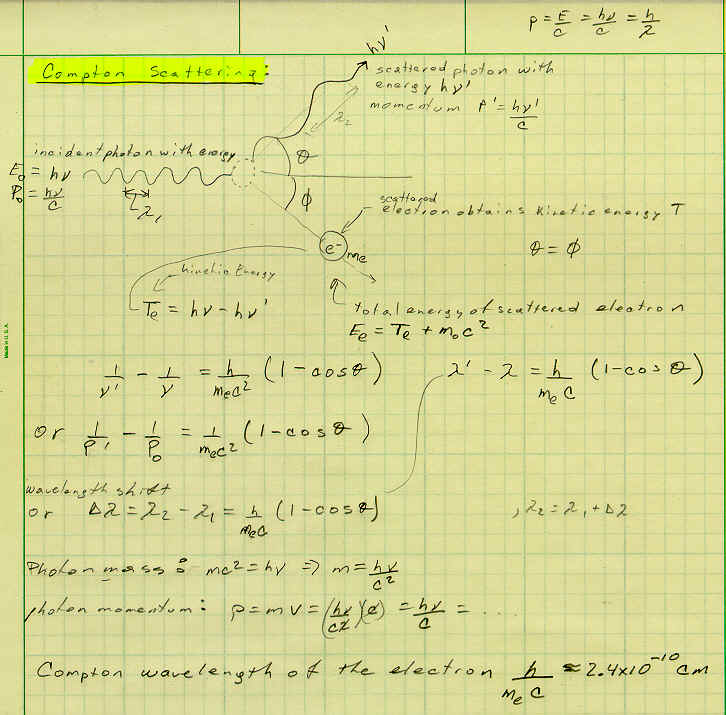 p = E/c = hν/c = h/λ
Compton Scattering:
hν'
scattered photon with
energy hν'
momentum P' = hν'/c
λ₂
incident photon with energy
E₀ = hν
P₀ = hν/c
λ₁
θ
ϕ
scattered
electron obtains kinetic energy T
e⁻ me
θ = ϕ
Kinetic Energy
Te = hν - hν'
total energy of scattered electron
Ee = Te + m₀c²
1/ν' - 1/ν = h/mec² (1 - cosθ)
λ' - λ = h/me c (1 - cosθ)
or 1/P' - 1/P₀ = 1/mec² (1 - cosθ)
wavelength shift
or Δλ = λ₂ - λ₁ = h/mec (1 - cosθ) , λ₂ = λ₁ + Δλ
Photon mass : mc² = hν ⇒ m = hν/c²
photon momentum : p = m v = (hν/c²)(c) = hν/c = ....
Compton wavelength of the electron h/me c ≈ 2.4x10⁻¹⁰ cm
Made in U.S.A.